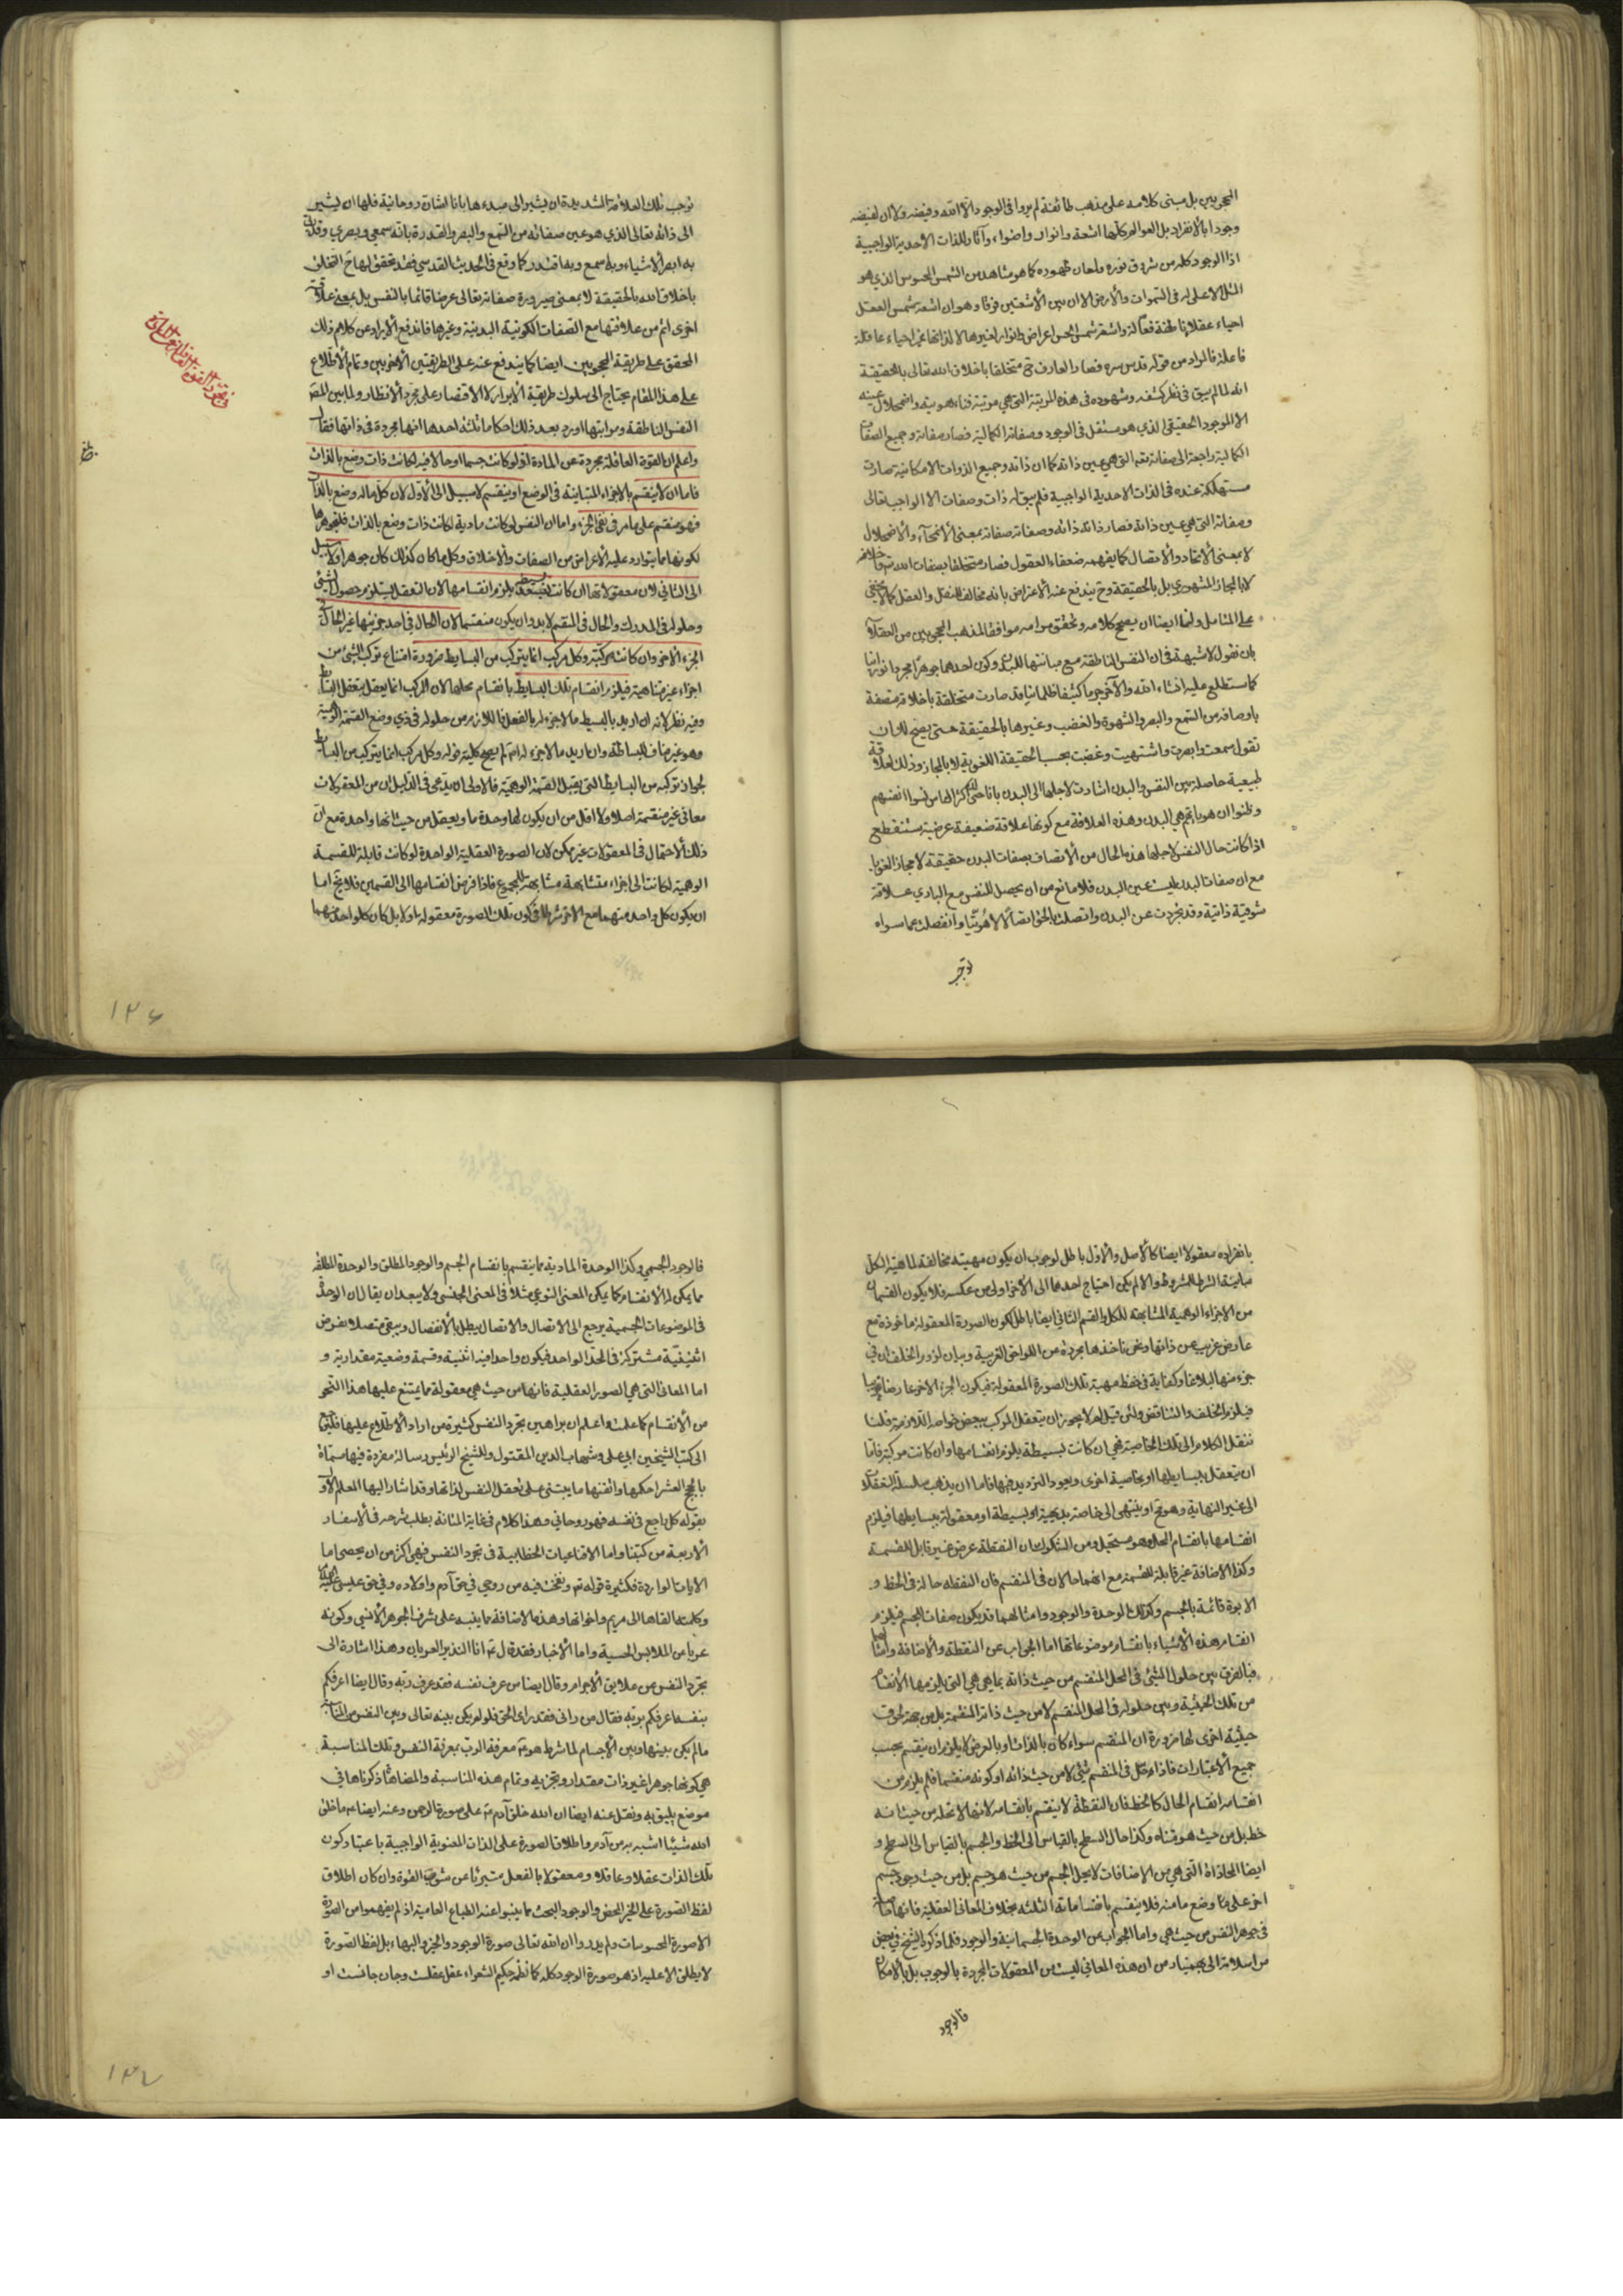 المحجوبين بل مبنى كلامه على مذهب طائفة لم يروا فى الوجود الا الله وفيضه ولا ان لفيضه
وجودا بالانفراد بل العوالم كلها اشعة وانوار واضواء وآثار للذات الاحدية الواجبية
اذ الوجود كله من شروق نوره ولمعان ظهوره كما هو مشاهد من الشمس المحسوس الذي هو
المثل الاعلى له فى السموات والارض الا ان بين الاشعتين فرقا وهو ان اشعة شمس العقل
احياء عقلاء ناطقة فعالة واشعة شمس الحس اعراض وانوار لغيرها لا لذاتها غير احياء عاقلة
فاعلة فالمراد من قوله قدس سره فصار العارف ح متخلقا باخلاق الله تعالى بالحقيقة
انه لما لم يبق فى نظر كشفه وشهوده فى هذه المرتبة التى هي مرتبة فناء هويته واضمحلال عينه
الا الموجود الحقيقى الذي هو مستقل فى الوجود وصفاته الكمالية فصار صفاته وجميع الصفات
الكمالية راجعة الى صفاته تعه التى هى عين ذاته كما ان ذاته وجميع الذوات الامكانية صارت
مستهلكة عنده فى الذات الاحدية الواجبية فلم يبق له ذات وصفات الا الواجب تعالى
وصفاته التى هي عين ذاته فصار ذاته ذاته وصفاته صفاته بمعنى الانمحاء والاضمحلال
لا بمعنى الاتحاد والاتصال كما يفهمه ضعفاء العقول فصار متخلقا بصفات الله
لا بالمجاز المشهورى بل بالحقيقة وح يندفع عنه الاعتراض بانه مخالف للنقل والعقل كما لا يخفى
على المتامل ولنا ايضا ان نصحح كلامه ونحقق مرامه موافقا لمذهب المحجوبين من العقلاء
بان نقول لا شبهة فى ان النفس الناطقة مع مباينتها للبدن وكون احدهما جوهرا مجردا نورانيا
كما ستطلع عليه انشاء الله والآخر جرما كثيفا ظلمانيا قد صارت متخلقة باخلاقه متصفة
باوصافه من السمع والبصر والشهوة والغضب وغيرها بالحقيقة حتى يصح لك ان
تقول سمعت وابصرت واشتهيت وغضبت بحسب الحقيقة اللغوية لا بالمجاز وذلك لعلاقة
طبيعية حاصلة بين النفس والبدن اشارت لاجلها الى البدن بانا حتى ان اكثر الناس نسوا انفسهم
وظنوا ان هوياتهم هي البدن وهذه العلاقة مع كونها علاقة ضعيفة عرضية ستنقطع
اذا كانت حال النفس لاجلها هذه الحال من الاتصاف بصفات البدن حقيقة لا مجازا لغويا
مع ان صفات البدن ليست عين البدن فلا مانع من ان يحصل للنفس مع الباري علاقة
شوقية ذاتية وقد تجردت عن البدن واتصلت بالحق اتصالا لاهوتيا وانفصلت عما سواه
توجب
توجب تلك العلاقة الشديدة ان يشير الى مبدءها بانا اشارة روحانية فلها ان يشير
الى ذاته تعالى الذي هو عين صفاته من السمع والبصر والقدرة بانه سمعي وبصري وقدرتى
به ابصر الاشياء وبه سمع وبه اقتدر كما وقع فى الحديث القدسي فقد تحقق لها ح التخلق
باخلاق الله بالحقيقة لا بمعنى صيرورة صفاته تعالى عرضا قائما بالنفس بل بمعنى علاقة
اخرى اتم من علاقتها مع الصفات الكونية البدنية وغيرها فاندفع الايراد عن كلام ذلك
المحقق على طريقة المحجوبين ايضا كما يندفع عنه على الطريقتين الاخريين وتمام الاطلاع
على هذا المقام يحتاج الى سلوك طريقة الابرار لا الاقتصار على مجرد الانظار ولما بين المصنف
النفس الناطقة ومراتبها اورد بعد ذلك احكاما ثلثة احدها انها مجردة فى ذاتها فقال
واعلم ان القوة العاقلة مجردة عن المادة اذ لو كانت جسما او حالا فيه لكانت ذات وضع بالذات
فاما ان لا ينقسم بالاجزاء المتباينة فى الوضع او ينقسم لا سبيل الى الاول لان كل ما له وضع بالذات
فهو منقسم على ما مر فى نفى الجزء واما ان النفس لو كانت مادية لكانت ذات وضع بالذات فلجوهرها
لكونها مما يتوارد عليه الاعراض من الصفات والاخلاق وكل ما كان كذلك كان جوهرا ولا سبيل
الى الثاني لان معقولاتها ان كانت بسيطة يلزم انقسامها لان التعقل يستلزم حصول الشئ
وحلوله فى المدرك والحال فى المنقسم لا بد وان يكون منقسما لان الحال فى احد جزئيها غير الحال فى
الجزء الاخر وان كانت مركبة وكل مركب انما يتركب من البسايط ضرورة امتناع تركب الشئ من
اجزاء غير متناهية فيلزم انقسام تلك البسايط بانقسام محلها لان المركب انما يعقل بتعقل البسايط
وفيه نظر لانه ان اريد بالبسيط ما لا جزء له بالفعل فاللازم من حلوله فى ذي وضع القسمة الوهمية
وهو غير مناف للبساطة وان اريد ما لا جزء له اصلا لم يصح كلية قوله وكل مركب انما يتركب من البسايط
لجواز تركبه من البسايط التى يقبل القسمة الوهمية فالاولى ان يدعى فى الدليل ان من المعقولات
معانى غير منقسمة اصلا ولا اقل من ان يكون لها وحدة ما ويعقل من حيث انها واحدة مع ان
ذلك الاحتمال فى المعقولات غير ممكن لان الصورة العقلية الواحدة لو كانت قابلة للقسمة
الوهمية لكانت الى اجزاء متشابهة مشابهة للمجموع فاذا فرض انقسامها الى القسمين فلا يخ اما
ان يكون كل واحد منهما مع الاخر شرطا فى كون تلك الصورة معقولة اولا بل كان كل واحد منهما
فى تجرد القوة العاقلة عن المادة
١٢٦
بانفراده معقولا ايضا كالاصل والاول باطل لوجوب ان يكون مهيته مخالفة لماهية الكل
مباينة الشرط للمشروط والا لم يكن احتياج احدهما الى الاخر اولى من عكسه فلا يكون القسمان
من الاجزاء الوهمية المشابهة للكل والقسم الثانى ايضا باطل لكون الصورة المعقولة ماخوذة مع
عارض غريب عن ذاتها ونحن ناخذها مجردة من اللواحق الغريبة وبيان لزوم الخلف ان فى
جزء منها لبلاغا وكفاية فى حفظ مهية تلك الصورة المعقولة فيكون الجزء الاخر عارضا غريبا
فيلزم الخلف والتناقض ولئن قيل لم لا يجوز ان يتعقل المركب ببعض خواصه اللازمة قلنا
ننقل الكلام الى تلك الخاصية فهي ان كانت بسيطة يلزم انقسامها وان كانت مركبة فاما
ان يتعقل ببسايطها او بخاصية اخرى ويعود الترديد فيها فاما ان يذهب سلسلة التعقلات
الى غير النهاية وهو مح او ينتهى الى خاصة بديهية او بسيطة او معقولة ببسايطها فيلزم
انقسامها بانقسام المحل وهو مستحيل ومن الشكوك ان النقطة عرض غير قابل للقسمة
وكذا الاضافة غير قابلة للقسمة مع انهما حالان فى المنقسم فان النقطة حالة فى الخط و
الابوة قائمة بالجسم وكذلك الوحدة والوجود وامثالهما قد يكون صفات للجسم فيلزم
انقسام هذه الاشياء بانقسام موضوعاتها اما الجواب عن النقطة والاضافة وامثالهما
فبالفرق بين حلول الشئ فى المحل المنقسم من حيث ذاته بما هي هي التى يلزمها الانقسام
من تلك الحيثية وبين حلوله فى المحل المنقسم لا من حيث ذاته المنقسمة بل من جهة لحوق
حيثية اخرى لها ضرورة ان المنقسم سواء كان بالذات او بالعرض لا يلزم ان ينقسم بحسب
جميع الاعتبارات فاذا حل فى المنقسم شئ لا من حيث ذاته او كونه منقسما فلم يلزم من
انقسامه انقسام الحال كالخط فان النقطة لا ينقسم بانقسامه لانها لا تحله من حيث انه
خط بل من حيث هو متناه وكذا حال السطح بالقياس الى الخط والجسم بالقياس الى السطح و
ايضا المحاذاة التى هي من الاضافات لا يحل الجسم من حيث هو جسم بل من حيث وجود جسم
اخر على وضع ما منه فلا ينقسم بانقساماته الثلثة بخلاف المعانى العقلية فانها حاصلة
فى جوهر النفس من حيث هي واما الجواب عن الوحدة الجسمانية والوجود فلما ذكره الشيخ فى بعض
مراسلاته الى بهمنيار من ان هذه المعانى ليست من المعقولات المجردة بالوجوب بل بالامكان
فالوجود
فالوجود الجسمى وكذا الوحدة المادية مما ينقسم بانقسام الجسم والوجود المطلق والوحدة المطلقة
مما يمكن له الانقسام كما يمكن المعنى النوعي مثلا فى المعنى الجنسى ولا يبعد ان يقال ان الوحدة
فى الموضوعات الجسمية يرجع الى الاتصال والاتصال يبطل بالانفصال ويبقى متصلا بفرض
اثنينية مشتركة فى الحد الواحد فيكون واحدا فيه اثنينية وقسمة وضعية مقدارية و
اما المعانى التى هي الصور العقلية فانها من حيث هي معقولة مما يمتنع عليها هذا النحو
من الانقسام كما علمت واعلم ان براهين تجرد النفس كثيرة من اراد الاطلاع عليها فليرجع
الى كتب الشيخين ابى على وشهاب الدين المقتول وللشيخ الرئيس رسالة مفردة فيها مسماة
بالحجج العشر احكمها واتقنها ما يبتنى على تعقل النفس لذاتها وقد اشار اليها المعلم الاول
بقوله كل راجع فى نفسه فهو روحاني وهذا كلام فى غاية المتانة يطلب شرحه فى الاسفار
الاربعة من كتبنا واما الاقناعيات الخطابية فى تجرد النفس فهي اكثر من ان يحصى اما
الايات الواردة فكثيرة قوله تع ونفخت فيه من روحي فى حق آدم واولاده وفى حق عيسى عليه السلام
وكلمته القاها الى مريم واخواتها وهذه الاضافة مما ينبه على شرف الجوهر الانسى وكونه
عريا من الملابس الحسية واما الاخبار فقد قال ع انا النذير العريان وهذا اشارة الى
تجرد النفس عن علايق الاجرام وقال ايضا من عرف نفسه فقد عرف ربه وقال ايضا اعرفكم
بنفسه اعرفكم بربه فقال من رانى فقد راى الحق فلو لم يكن بينه تعالى وبين النفس من المناسبة
ما لم يكن بينها وبين الاجسام لما شرط هو معرفة الرب بمعرفة النفس وتلك المناسبة
هي كونها جوهرا غير ذات مقدار وتجزيه وتمام هذه المناسبة والمضاهاة ذكرناها فى
موضع يليق به ونقل عنه ايضا ان الله خلق آدم على صورة الرحمن وعنه ايضا ما خلق
الله شيئا اشبه به من آدم واطلاق الصورة على الذات المعنوية الواجبية باعتبار كون
تلك الذات عقلا وعاقلا ومعقولا بالفعل متبرئا عن شوب القوة وان كان اطلاق
لفظ الصورة على الخير المحض والوجود البحت مما ينبو عنه الطباع العامية اذ لم يفهموا من الصورة
الا صورة المحسوسات ولم يدروا ان الله تعالى صورة الوجود والخير والبهاء بل لفظ الصورة
لا يطلق الا عليه اذ هو صورة الوجود كله كما نظمه حكيم الشعراء عقل عقلست وجان جانست او
١٢٧